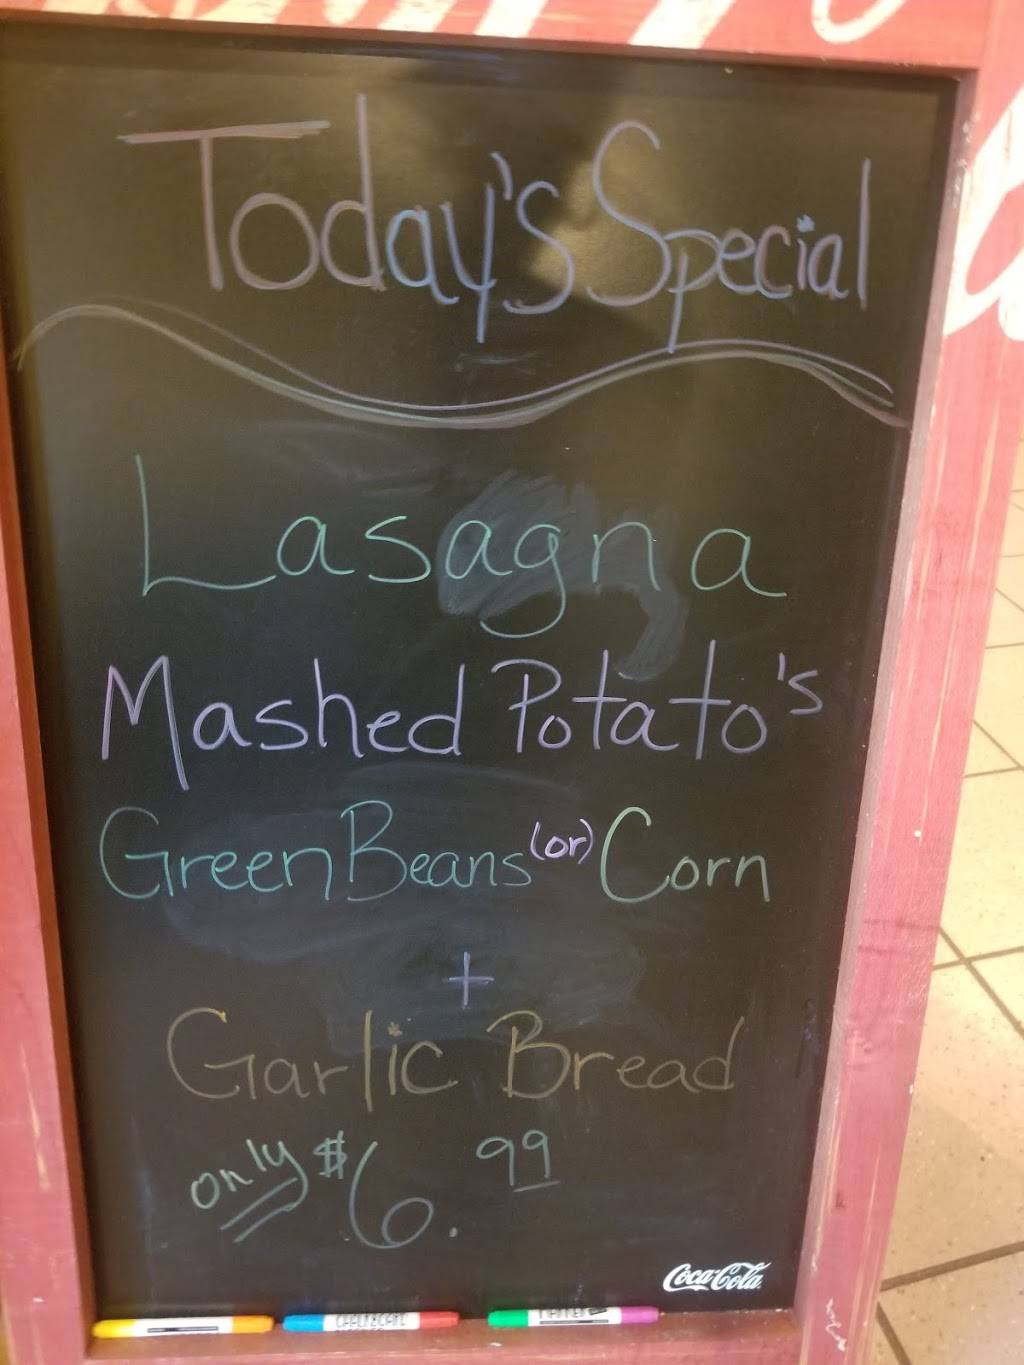 Today's Special
Lasagna
Mashed Potato's
Green Beans (or) Corn
+
Garlic Bread
only $6.99
Coca-Cola